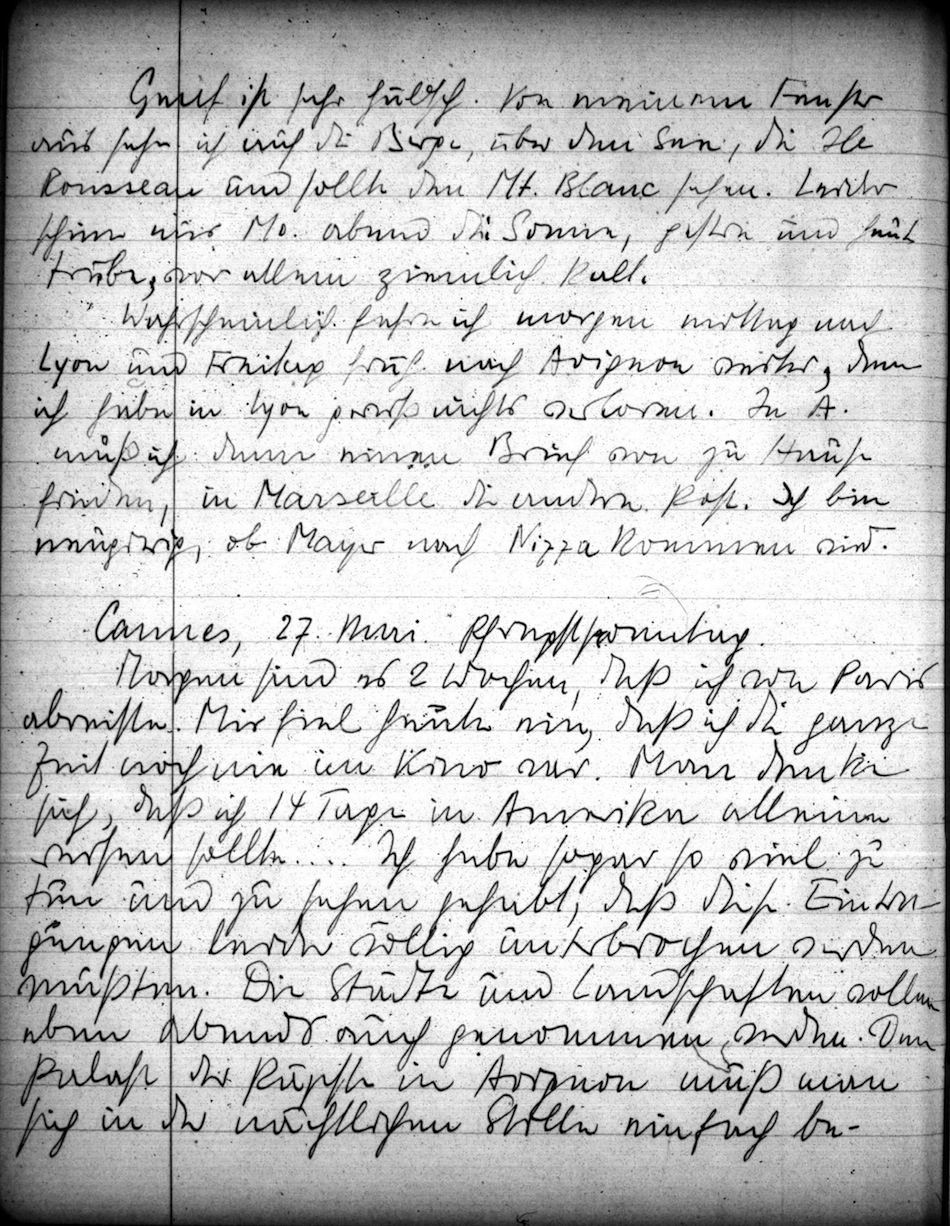 Genf ist sehr hübsch. Von meinem Fenster
aus sehe ich auf die Berge, über den See, die Ile
Rousseau und sollte den Mt. Blanc sehen. Leider
schien nur Mo. abend die Sonne, gestern und heute
trübe, vor allem ziemlich kalt.
Wahrscheinlich fahre ich morgen mittag nach
Lyon und Freitag früh nach Avignon weiter, denn
ich habe in Lyon gewiß nichts verloren. In A.
muß ich dann einen Brief von zu Hause
finden, in Marseille die andere Post. Ich bin
neugierig, ob Mayer nach Nizza kommen wird.
Cannes, 27. Mai. Pfingstsonntag.
Morgen sind es 2 Wochen, daß ich von Paris
abreiste. Mir fiel heute ein, daß ich die ganze
Zeit noch nie im Kino war. Man denke
sich, daß ich 14 Tage in Amerika alleine
reisen sollte.... Ich habe sogar so viel zu
tun und zu sehen gehabt, daß diese Eintra-
gungen leider völlig unterbrochen werden
mußten. Die Städte und Landschaften wollen
eben abends auch genommen werden. Den
Palast der Päpste in Avignon muß man
sich in der nächtlichen Stille einfach be-